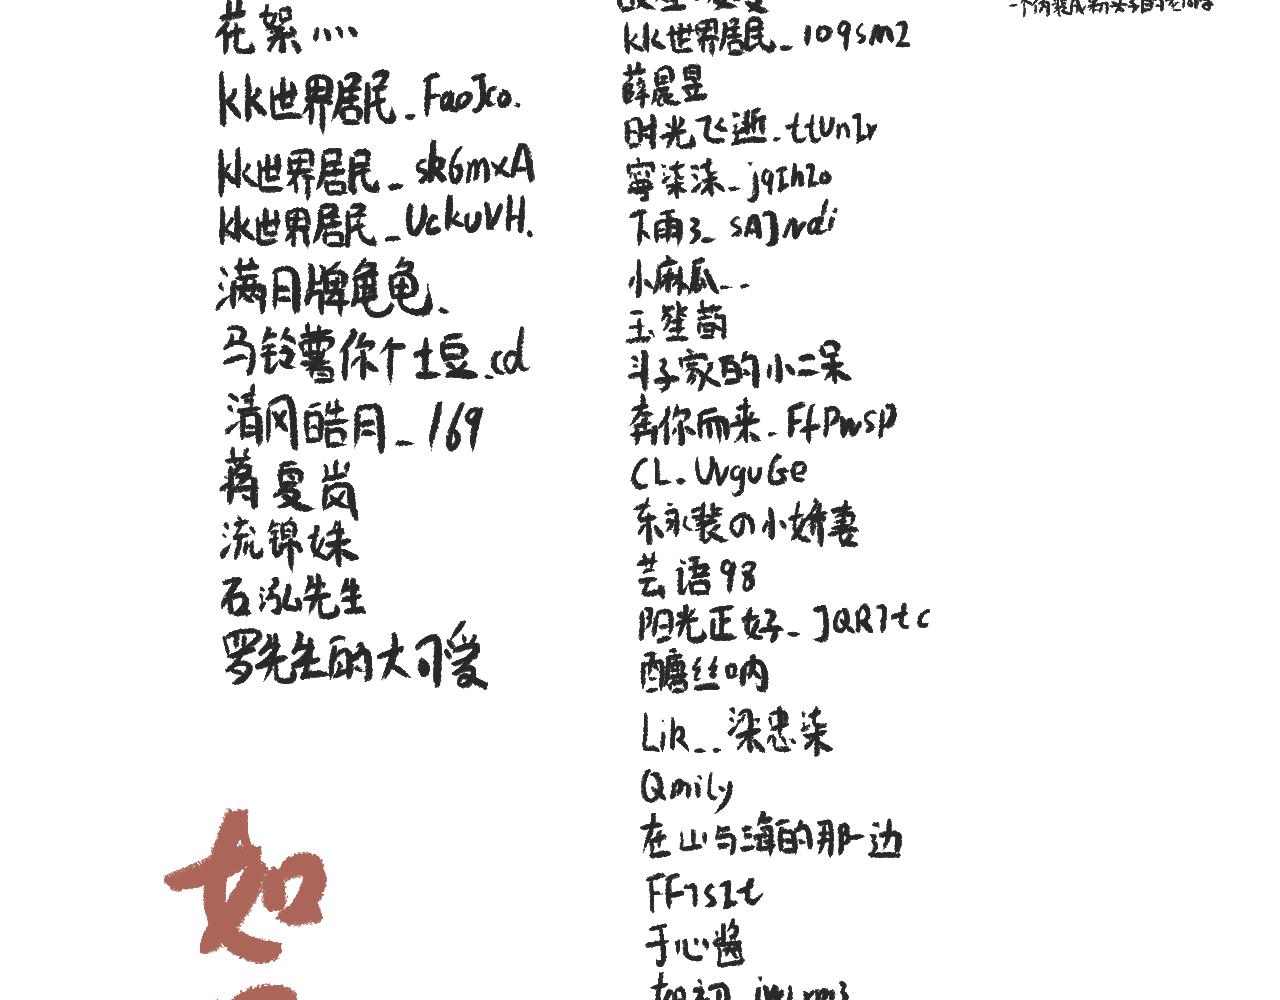 花絮灬
kk世界居民_FaoJco.
kk世界居民_sk6mxA
kk世界居民_UckuVH.
满月牌龟龟.
马铃薯你个土豆.cd
清风皓月_169
蒋夏岚
流锦妹
石泓先生
罗先生的大可爱
如
kk世界居民_109sm2
薛晨昱
时光飞逝.ttUnIv
寧柒柒_jqIh2o
下雨了_SAJrdi
小麻瓜..
玉笙
斗子家的小二呆
奔你而来.FfPwsp
CL.UvguGe
东永裝の小娇妻
芸语98
阳光正好_JQR7tc
醺丝呐
Lik__梁忠柒
Qmily
在山与海的那一边
FF7sIt
于心酱
如初_